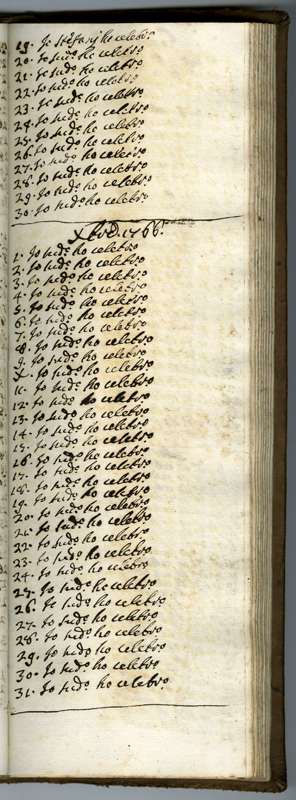 19. Io Stefanj ho celebro
20. Io sudo. ho celebro
21. Io sudo. ho celebro
22. Io sudo. ho celebro
23. Io sudo. ho celebro
24. Io sudo. ho celebro
25. Io sudo. ho celebro
26. Io sudo. ho celebro
27. Io sudo. ho celebro
28. Io sudo. ho celebro
29. Io sudo. ho celebro
30. Io sudo. ho celebro
Xbro. 1766.
1. Io sudo. ho celebro
2. Io sudo. ho celebro
3. Io sudo. ho celebro
4. Io sudo. ho celebro
5. Io sudo. ho celebro
6. Io sudo. ho celebro
7. Io sudo. ho celebro
8. Io sudo. ho celebro
9. Io sudo. ho celebro
X. Io sudo. ho celebro
11. Io sudo. ho celebro
12. Io sudo. ho celebro
13. Io sudo. ho celebro
14. Io sudo. ho celebro
15. Io sudo. ho celebro
16. Io sudo. ho celebro
17. Io sudo. ho celebro
18. Io sudo. ho celebro
19. Io sudo. ho celebro
20. Io sudo. ho celebro
21. Io sudo. ho celebro
22. Io sudo. ho celebro
23. Io sudo. ho celebro
24. Io sudo. ho celebro
25. Io sudo. ho celebro
26. Io sudo. ho celebro
27. Io sudo. ho celebro
28. Io sudo. ho celebro
29. Io sudo. ho celebro
30. Io sudo. ho celebro
31. Io sudo. ho celebro.